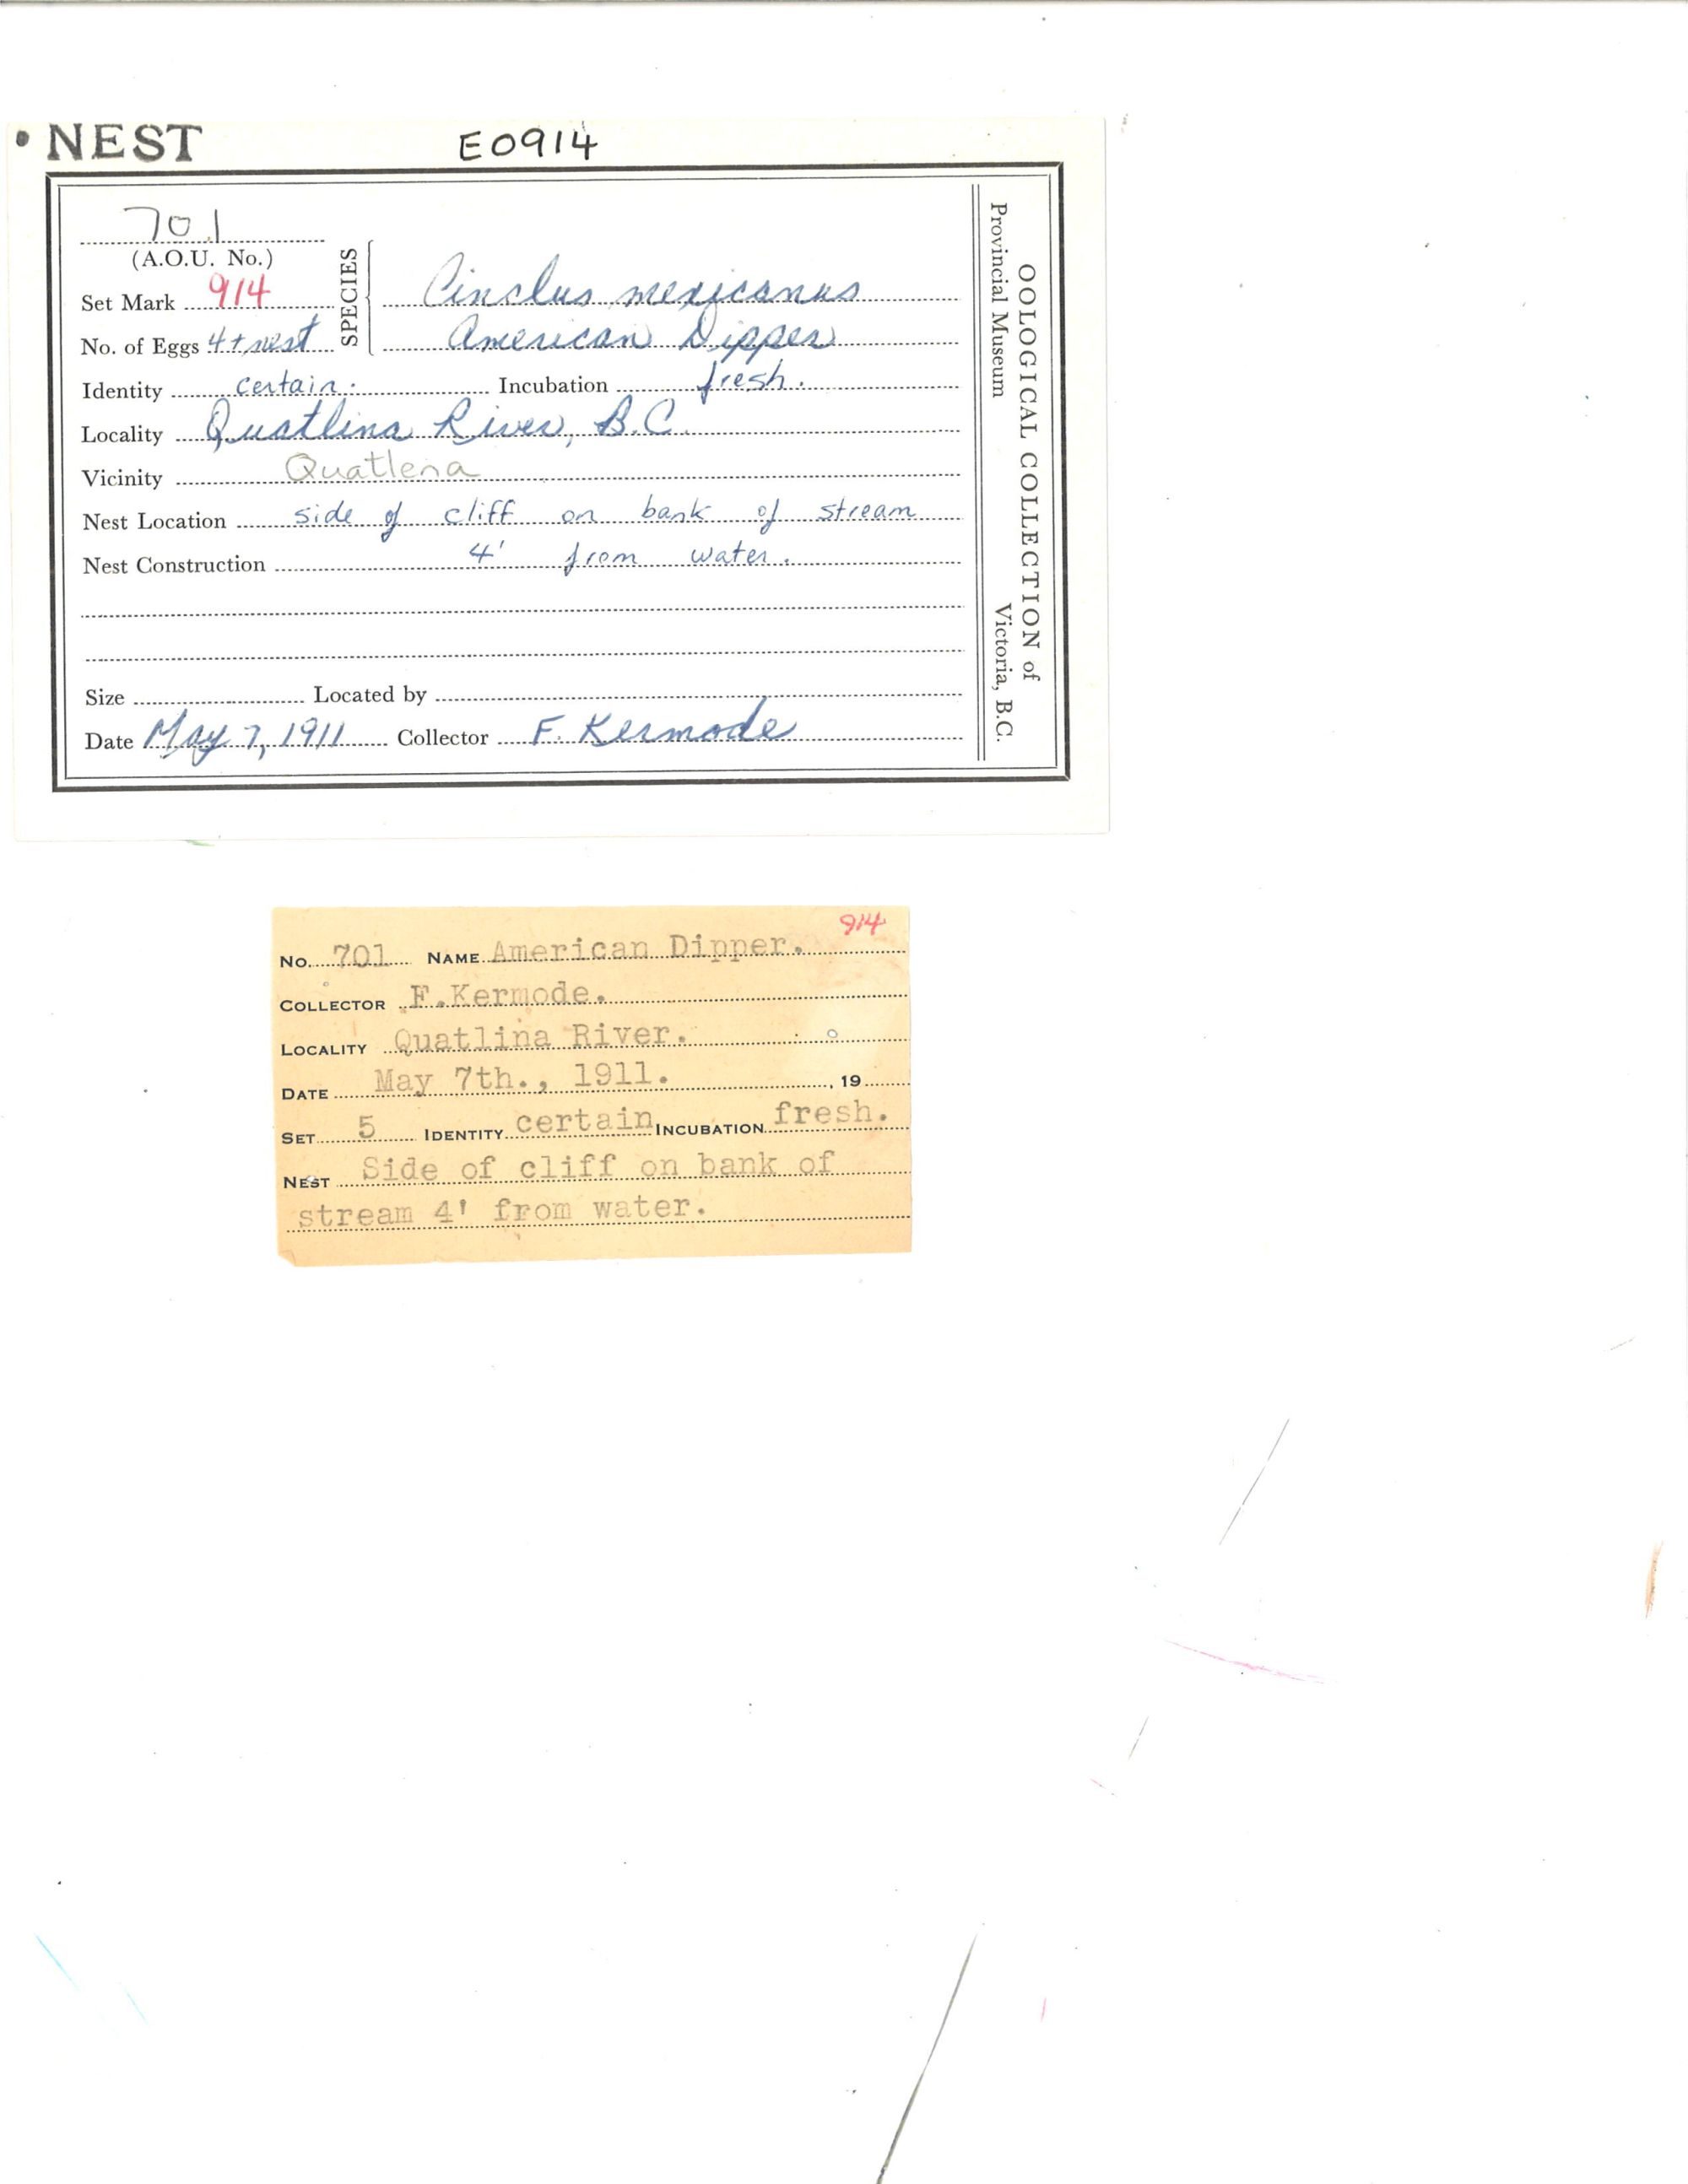 • NEST E0914
701
(A.O.U. No.)
Set Mark 914
No. of Eggs 4 + nest
SPECIES
Cinclus mexicanus
American Dipper
Identity certain. Incubation fresh.
Locality Quatlina River, B.C.
Vicinity Quatlena
Nest Location side of cliff on bank of stream
Nest Construction 4' from water.
Size Located by
Date May 7, 1911 Collector F. Kermode
OOLOGICAL COLLECTION of
Provincial Museum Victoria, B.C.
914
No. 701 NAME American Dipper.
COLLECTOR F.Kermode.
LOCALITY Quatlina River.
DATE May 7th., 1911. , 19
SET 5 IDENTITY certain INCUBATION fresh.
NEST Side of cliff on bank of
stream 4' from water.